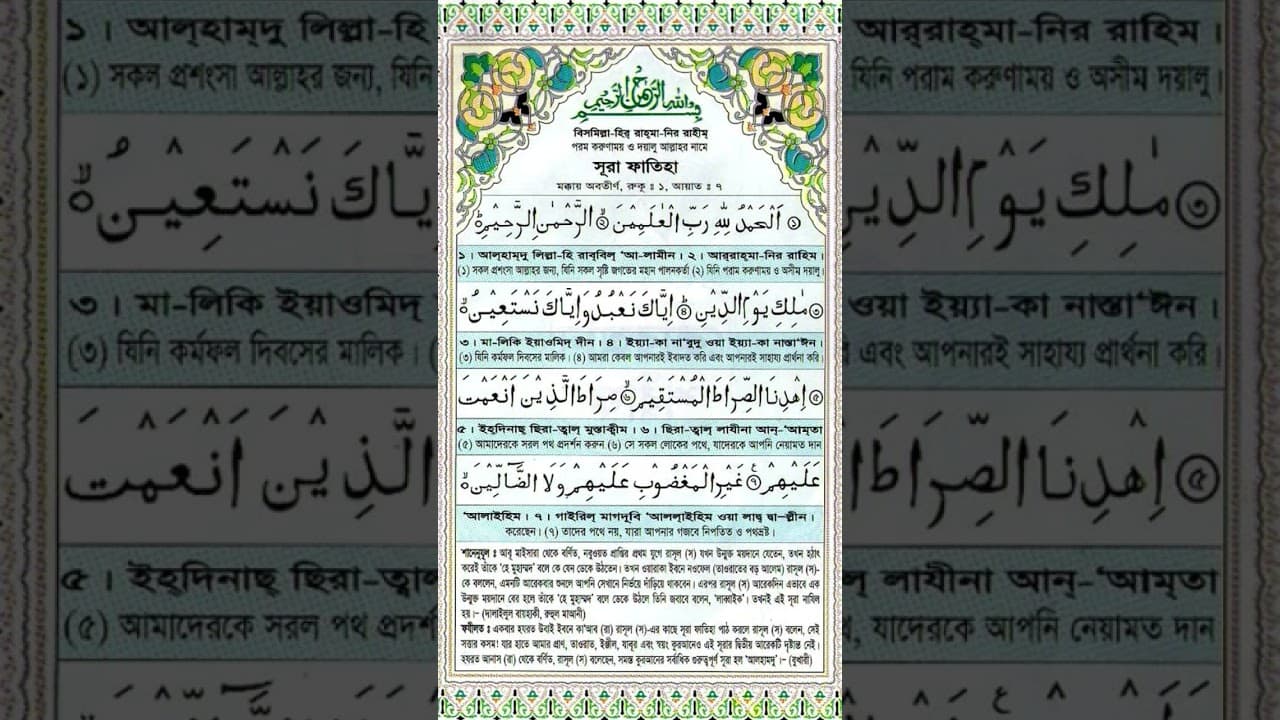 بِسْمِ اللهِ الرَّحْمٰنِ الرَّحِيْمِ
বিসমিল্লা-হির্ রাহ্মা-নির রাহীম্
পরম করুণাময় ও দয়ালু আল্লাহর নামে
সূরা ফাতিহা
মক্কায় অবতীর্ণ, রুকু ঃ ১, আয়াত ঃ ৭
① اَلْحَمْدُ لِلّٰهِ رَبِّ الْعٰلَمِيْنَ ② الرَّحْمٰنِ الرَّحِيْمِ
১। আল্হাম্দু লিল্লা-হি রাব্বিল্ ‘আ-লামীন। ২। আর্রাহ্মা-নির রাহিম।
(১) সকল প্রশংসা আল্লাহর জন্য, যিনি সকল সৃষ্টি জগতের মহান পালনকর্তা (২) যিনি পরাম করুণাময় ও অসীম দয়ালু।
③ مٰلِكِ يَوْمِ الدِّيْنِ ④ اِيَّاكَ نَعْبُدُ وَاِيَّاكَ نَسْتَعِيْنُ
৩। মা-লিকি ইয়াওমিদ্ দীন। ৪। ইয়্যা-কা না'বুদু ওয়া ইয়্যা-কা নাস্তা‘ঈন।
(৩) যিনি কর্মফল দিবসের মালিক। (৪) আমরা কেবল আপনারই ইবাদত করি এবং আপনারই সাহায্য প্রার্থনা করি।
⑤ اِهْدِنَا الصِّرَاطَ الْمُسْتَقِيْمَ ⑥ صِرَاطَ الَّذِيْنَ اَنْعَمْتَ
৫। ইহ্দিনাছ্ ছিরা-ত্বাল্ মুস্তাক্বীম। ৬। ছিরা-ত্বাল্ লাযীনা আন্-‘আম্তা
(৫) আমাদেরকে সরল পথ প্রদর্শন করুন (৬) সে সকল লোকের পথে, যাদেরকে আপনি নেয়ামত দান
عَلَيْهِمْ ⑦ غَيْرِ الْمَغْضُوْبِ عَلَيْهِمْ وَلَا الضَّآلِّيْنَ
‘আলাইহিম। ৭। গাইরিল্ মাগদূবি ‘আলল্াইহিম ওয়া লাদ্ব দ্বা-ল্লীন।
করেছেন। (৭) তাদের পথে নয়, যারা আপনার গজবে নিপতিত ও পথভ্রষ্ট।
শানেনুযূল ঃ আবূ মাইসারা থেকে বর্ণিত, নবুওয়ত প্রাপ্তির প্রথম যুগে রাসূল (স) যখন উন্মুক্ত ময়দানে যেতেন, তখন হঠাৎ
করেই তাঁকে 'হে মুহাম্মদ' বলে কে যেন ডেকে উঠতেন। তখন ওয়ারাকা ইবনে নওফেল (তাওরাতের বড় আলেম) রাসূল (স)-
কে বললেন, এমনটি আরেকবার শুনলে আপনি সেখানে নির্ভয়ে দাঁড়িয়ে থাকবেন। এরপর রাসূল (স) আরেকদিন এভাবে এক
উন্মুক্ত ময়দানে বের হলে তাঁকে 'হে মুহাম্মদ' বলে ডেকে উঠলে তিনি জবাবে বলেন, 'লাব্বাইক'। তখনই এই সূরা নাযিল
হয়।- (দালাইলুল বায়হাকী, রুহুল মাআনী)
ফযীলত ঃ একবার হযরত উবাই ইবনে কা'আব (রা) রাসূল (স)-এর কাছে সূরা ফাতিহা পাঠ করলে রাসূল (স) বলেন, সেই
সত্তার কসম! যার হাতে আমার প্রাণ, তাওরাত, ইঞ্জীল, যাবূর এবং স্বয়ং কুরআনেও এই সূরার দ্বিতীয় আরেকটি দৃষ্টান্ত নেই।
হযরত আনাস (রা) থেকে বর্ণিত, রাসূল (স) বলেছেন, সমস্ত কুরআনের সর্বাধিক গুরুত্বপূর্ণ সূরা হল 'আলহামদু'।- (বুখারী)